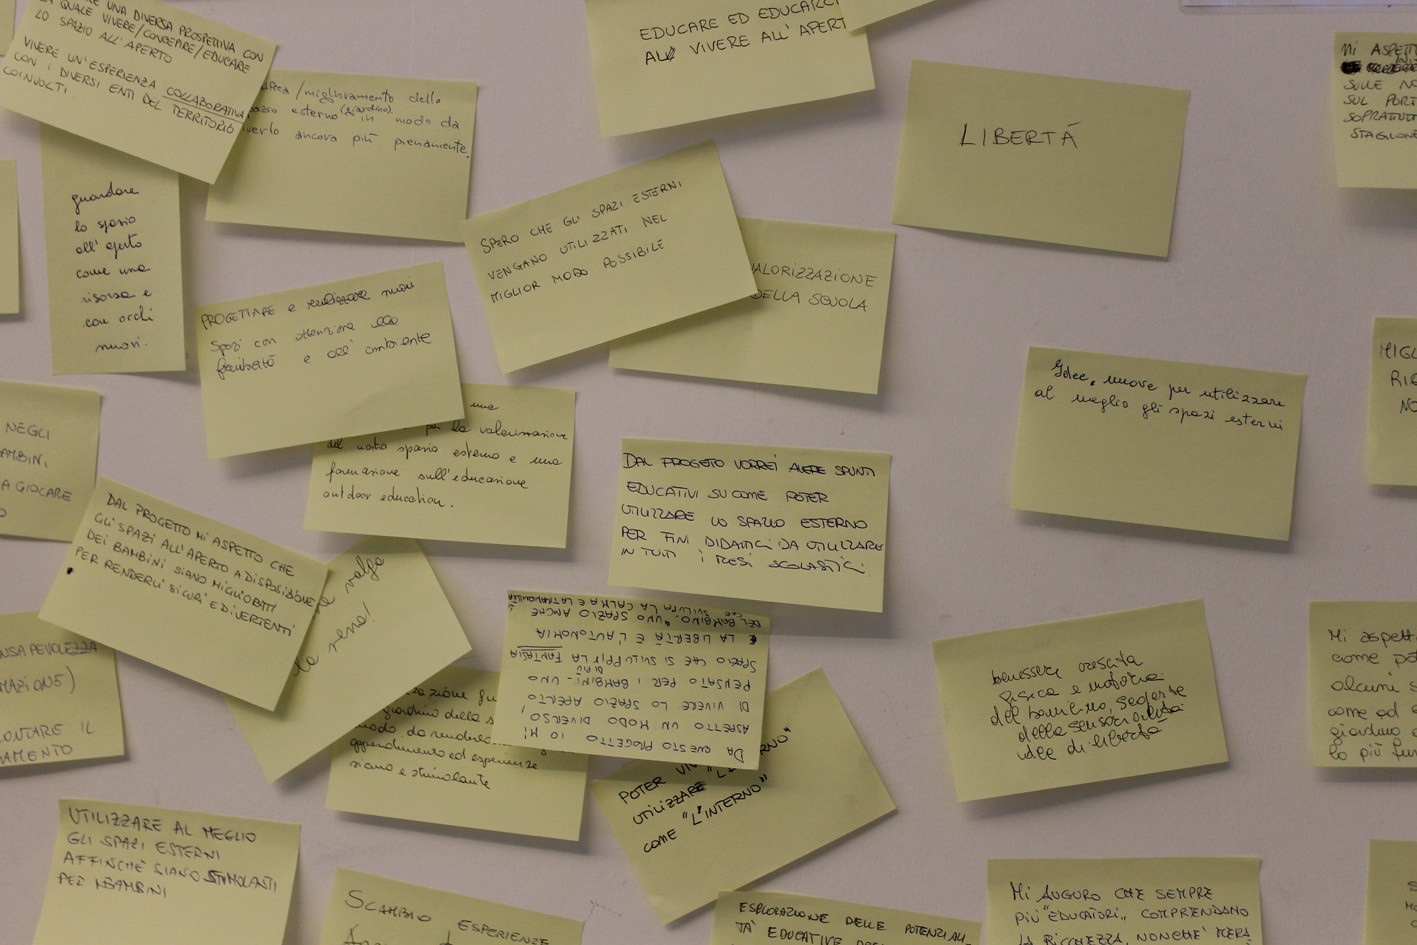 UNA DIVERSA PROSPETTIVA CON
LA QUALE VIVERE/CONCEPIRE/EDUCARE
LO SPAZIO ALL'APERTO
VIVERE UN'ESPERIENZA COLLABORATIVA
CON I DIVERSI ENTI DEL TERRITORIO
COINVOLTI
/miglioramento dello
esterno (giardino) in modo da
ancora più pienamente.
guardare
lo spazio
all'aperto
come una
risorsa e
con occhi
nuovi.
EDUCARE ED EDUCARCI
AL VIVERE ALL'APERT
LIBERTÁ
MI ASPETT
SULLE NO
SUL PORT
SOPRATUTT
STAGIONE
SPERO CHE GLI SPAZI ESTERNI
VENGANO UTILIZZATI NEL
MIGLIOR MODO POSSIBILE
VALORIZZAZIONE
DELLA SCUOLA
PROGETTARE e realizzare nuovi
spazi con attenzione alla
fruibilità e all'ambiente
una
per la valorizzazione
del nostro spazio esterno e una
formazione sull'educazione
outdoor education.
Idee nuove per utilizzare
al meglio gli spazi esterni
MIGL
RIC
NO
NEGLI
AMBINI,
A GIOCARE
DAL PROGETTO MI ASPETTO CHE
GLI SPAZI ALL'APERTO A DISPOSIZIONE
DEI BAMBINI SIANO MIGLIORATI
PER RENDERLI SICURI E DIVERTENTI
valga
la pena!
DAL PROGETTO VORREI AVERE SPUNTI
EDUCATIVI SU COME POTER
UTILIZZARE LO SPAZIO ESTERNO
PER FINI DIDATTICI DA UTILIZZARE
IN TUTTI I MESI SCOLASTICI.
DA QUESTO PROGETTO IO MI
ASPETTO UN MODO DIVERSO,
DI VIVERE LO SPAZIO APERTO
PENSATO PER I BAMBINI - UNO
SPAZIO CHE SI SVILUPPI DI PIÙ LA FANTASIA
E LA LIBERTÀ E L'AUTONOMIA
DEL BAMBINO. "UNO" SPAZIO ANCHE
CHE SVILUPPA LA CALMA E LA TRANQUILLITÀ
NSAPEVOLEZZA
MAZIONE)
ONTARE IL
AMENTO
giardino della s
modo da render
apprendimento ed esperienze
sicuro e stimolante
POTER VIV
UTILIZZARE "L'
COME "L'INTERNO"
benessere crescita
fisica e motoria
del bambino, scoperte
della sensorialità
idee di libertà
Mi aspett
come pot
alcuni s
come ad e
giardino
lo più fun
UTILIZZARE AL MEGLIO
GLI SPAZI ESTERNI
AFFINCHÈ SIANO STIMOLANTI
PER I BAMBINI
SCAMBIO ESPERIENZE
ESPLORAZIONE DELLE POTENZIALI-
TÀ EDUCATIVE
MI AUGURO CHE SEMPRE
PIÙ "EDUCATORI" COMPRENDANO
LA RICCHEZZA, NONCHÈ